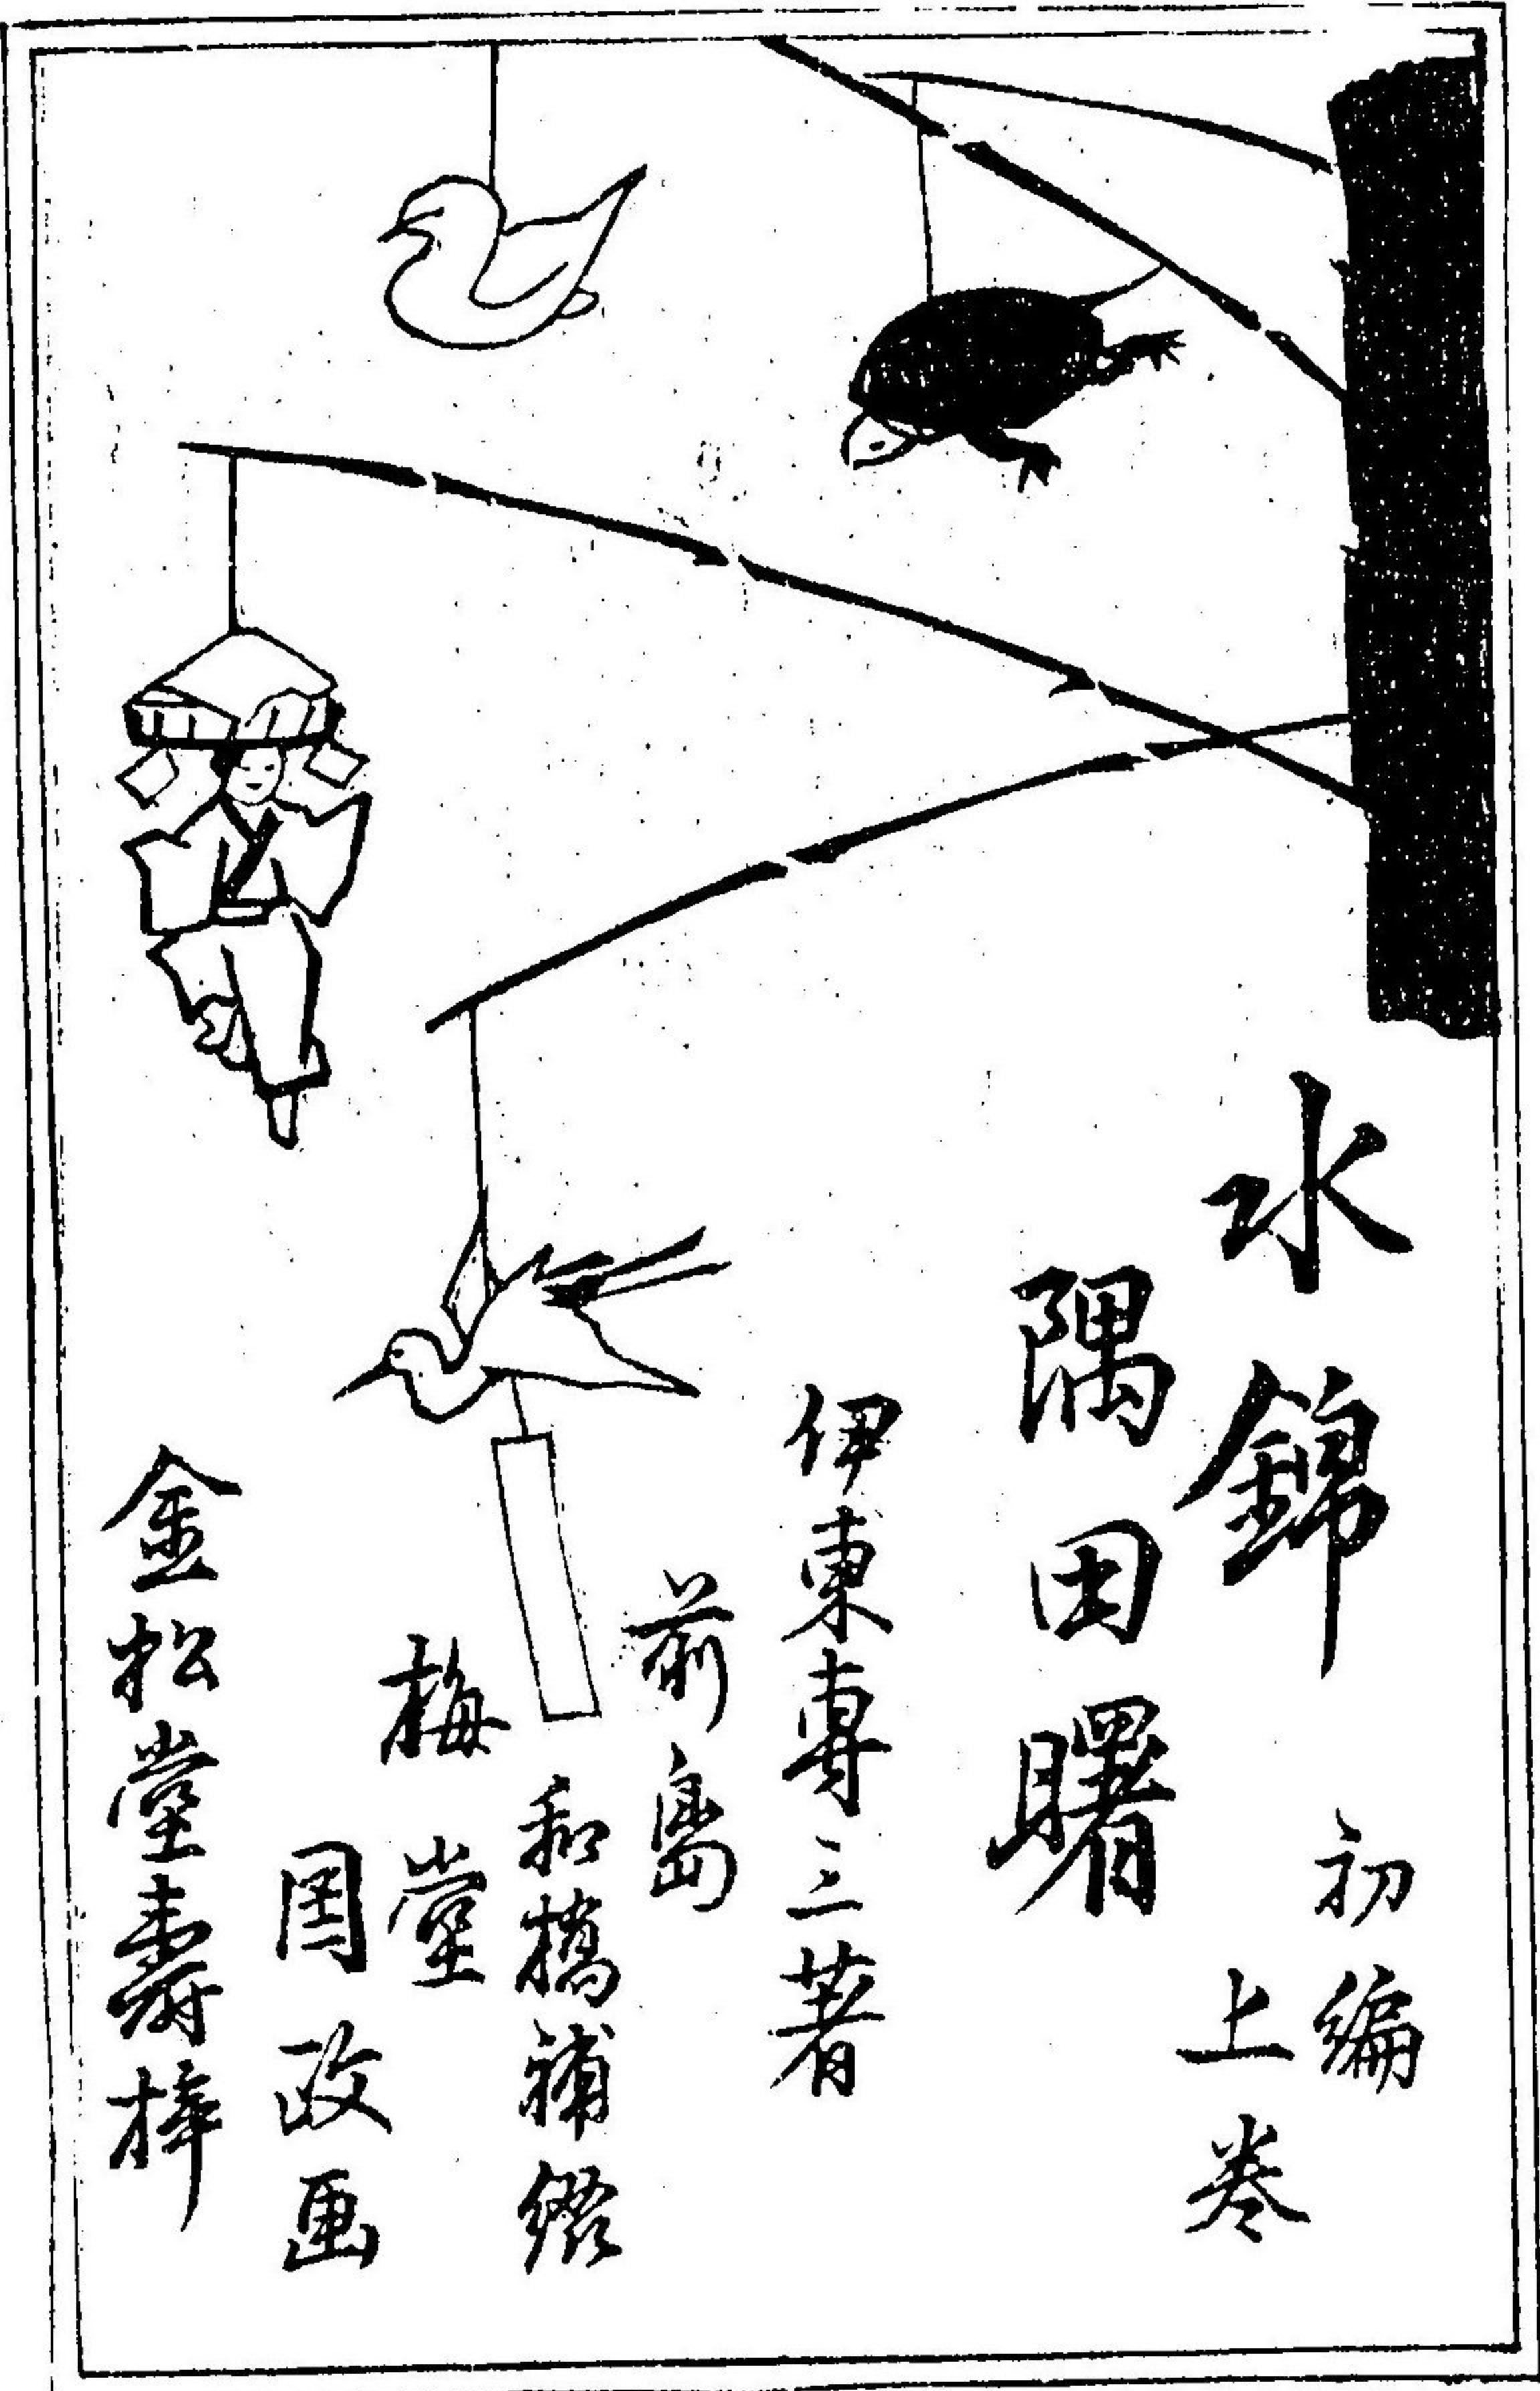 水錦
隅田曙
初編
上巻
伊東専三著
前島
和橋補綴
梅堂
国政画
金松堂寿梓